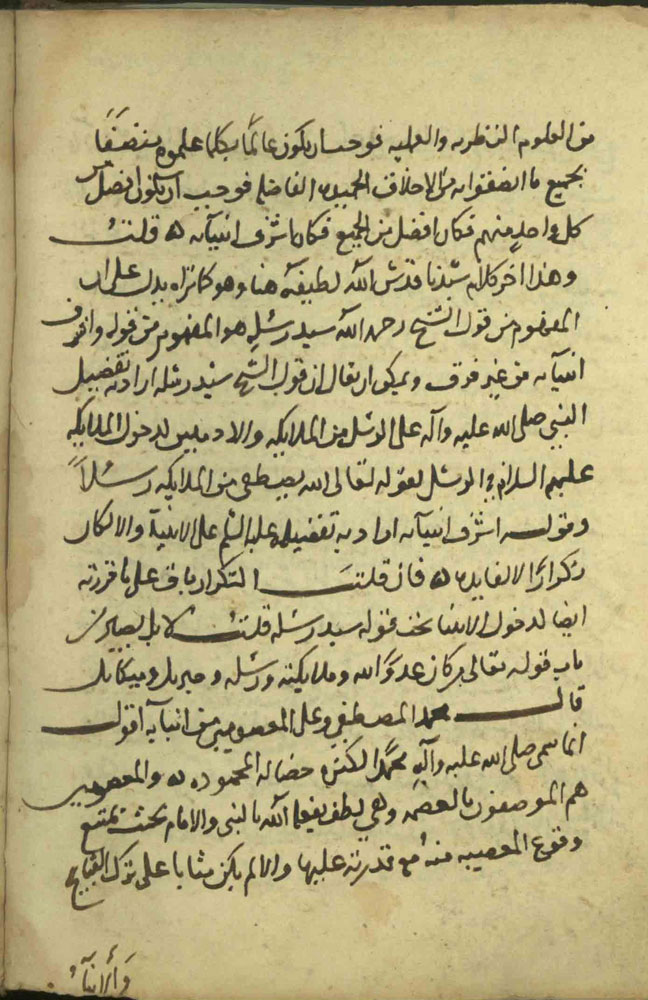 من العلوم النظريه والعمليه فوجب ان يكون عالمًا بكلما علموه متصفًا
بجميع ما اتصفوا به من الاخلاق الحميده الفاضله فوجب ان يكون افضل من
كل واحدٍ منهم فكان افضل من الجميع فكان اشرف انبيآئه ه قلت
وهذا آخر كلام شيخنا قدس الله لطيفه هنا وهو كما تراه يدل على ان
المفهوم من قول الشيخ رحمه الله سيد رسله هو المفهوم من قوله واشرف
انبيآئه من غير فرق ويمكن ان يقال ان قول الشيخ سيد رسله اراد به تفضيل
النبي صلى الله عليه وآله على الرسل من الملايكه والادميين لدخول الملايكه
عليهم السلام في الرسل لقوله تعالى الله يصطفي من الملايكه رسلاً
وقوله اشرف انبيآئه اراد به تفضيله عليه السلم على الانبيآء والا لكان
تكرارًا لا لفايده ه فان قلت التكرار باق على ما قررته
ايضا لدخول الانبيا تحت قوله سيد رسله قلت لا بل يصير من
باب قوله تعالى من كان عدوًا لله وملايكته ورسله وجبريل وميكايل
قال محمد المصطفى وعلى المعصومين من انبيآئه اقول
انما سمى صلى الله عليه وآله محمدًا لكثرة خصاله المحموده ه والمعصومين
هم الموصوفون بالعصمه وهي لطف يفعله الله بالنبي والامام بحيث يمتنع
وقوع المعصيه منه مع قدرته عليها والا لم يكن مثابا على ترك القبايح